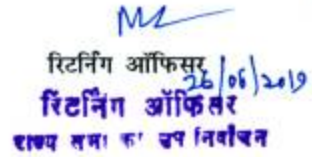 रिटर्निंग ऑफिसर
26/06/2019
रिटर्निंग ऑफिसर
राज्य सभा का उप निर्वाचन